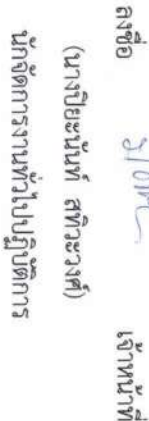 ลงชื่อ เจ้าหน้าที่
(นางปิยะนันท์ สทิวะวงศ์)
นักจัดการงานทั่วไปปฏิบัติการ